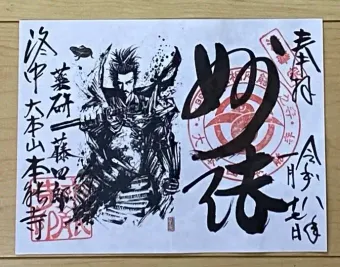 奉拝
令和八年
月十七日
妙法
薬研藤四郎
洛中 大本山本能寺